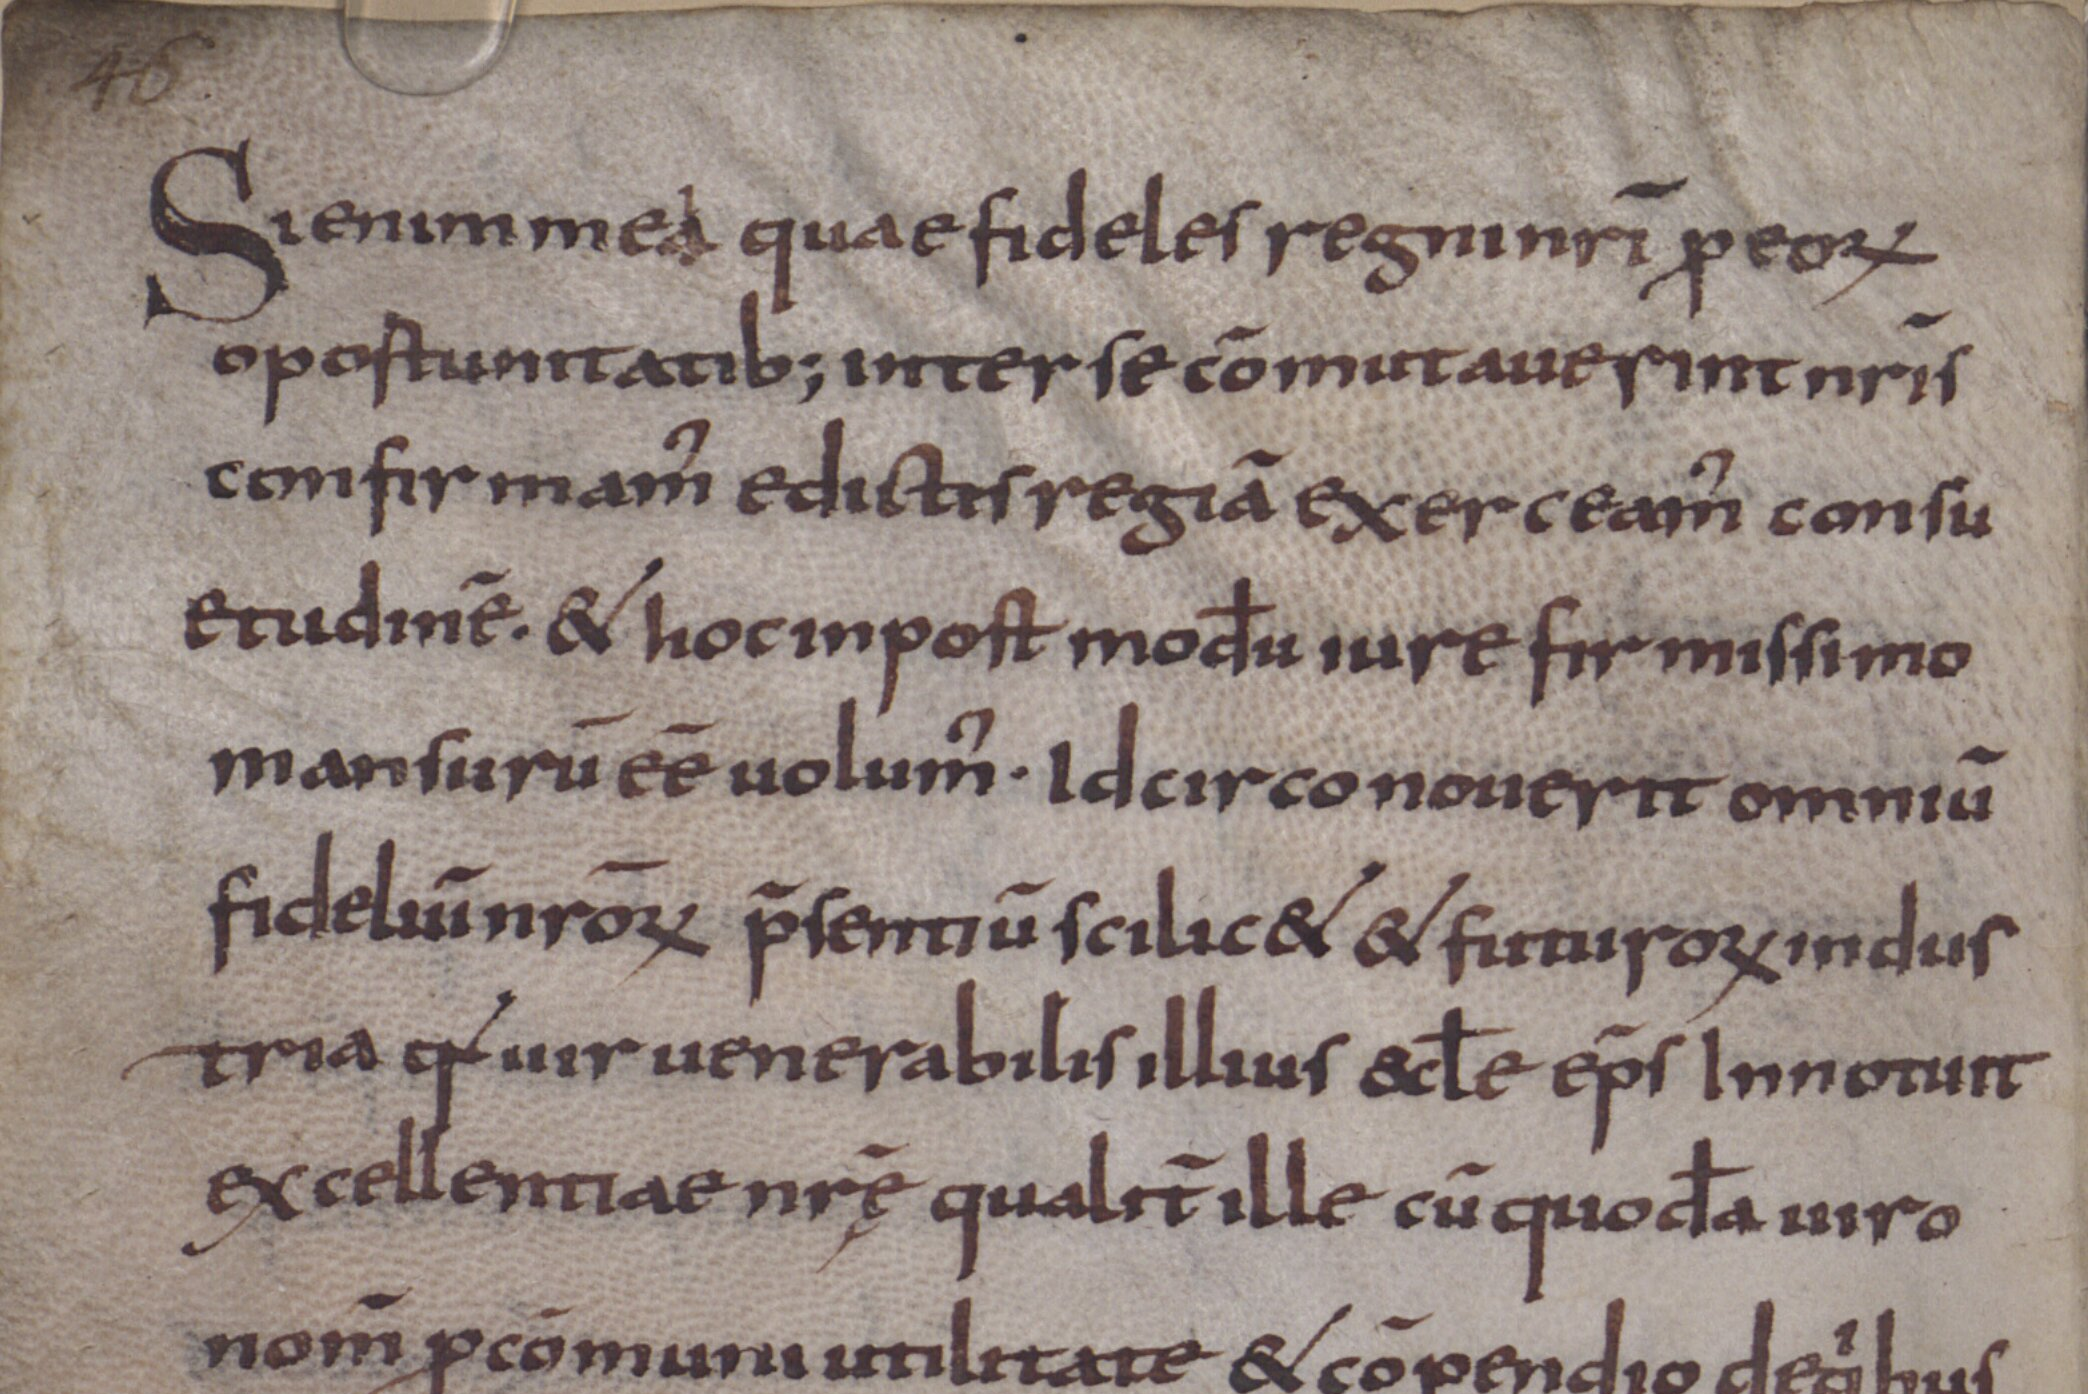 46
Si enim mea quae fideles regni nrī p eoꝝ
oportunitatib; inter se cōmutauerint nrīs
confirmamꝰ edictis regiā exerceamꝰ consu
etudinē. & hoc inpost modū iure firmissimo
mansurū eē uolumꝰ. Idcirco nouerit omniū
fideliū nrōꝝ p̄sentiū scilic& & futuroꝝ indus
tria qꝰ uir uenerabilis illius &cłe ep̄s Innotuit
excellentiae nrę̄ qualit̄ ille cū quodā uiro
nom̄ p cōmuni utilitate & cōpendio de qͥbus